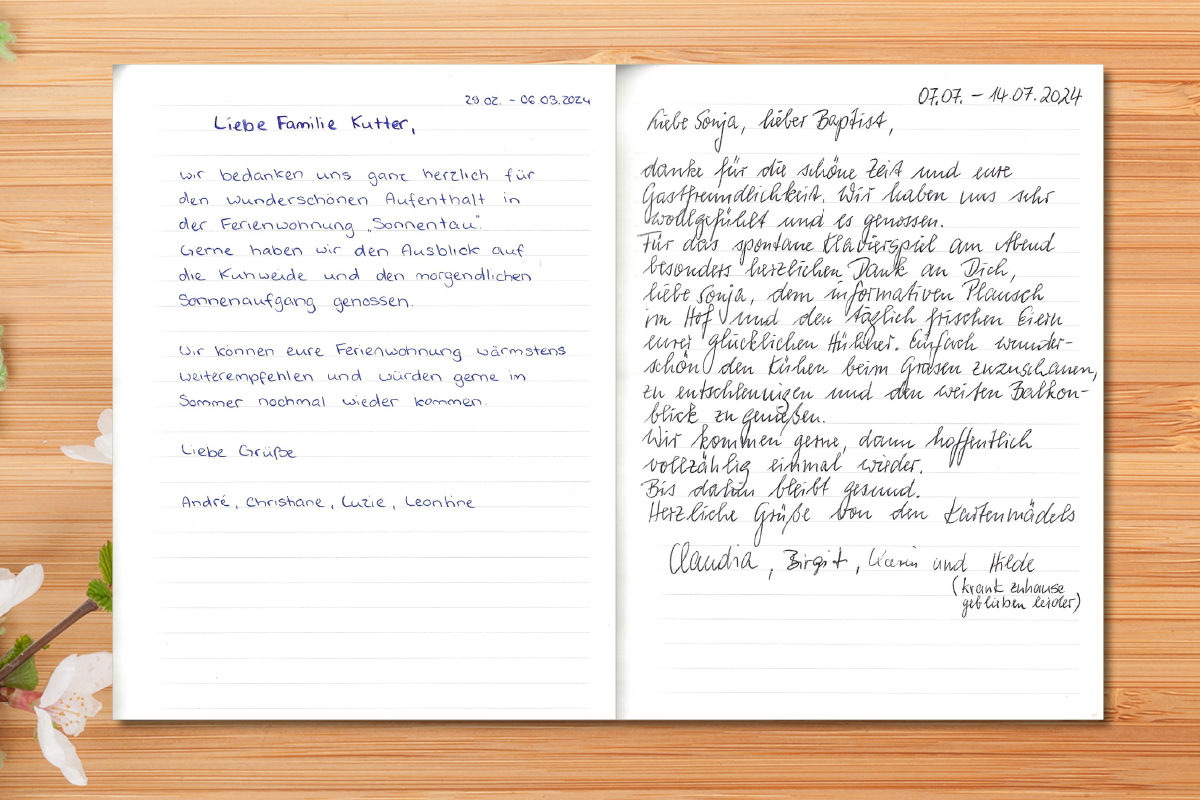 29.02. - 06.03.2024
Liebe Familie Kutter,
wir bedanken uns ganz herzlich für
den wunderschönen Aufenthalt in
der Ferienwohnung „Sonnentau".
Gerne haben wir den Ausblick auf
die Kuhweide und den morgendlichen
Sonnenaufgang genossen.
Wir können eure Ferienwohnung wärmstens
weiterempfehlen und würden gerne im
Sommer nochmal wieder kommen.
Liebe Grüße
André, Christiane, Luzie, Leontine
07.07. - 14.07.2024
Liebe Sonja, lieber Baptist,
danke für die schöne Zeit und eure
Gastfreundlichkeit. Wir haben uns sehr
wohlgefühlt und es genossen.
Für das spontane Klavierspiel am Abend
besonders herzlichen Dank an Dich,
liebe Sonja, dem informativen Plausch
im Hof und den täglich frischen Eiern
eurer glücklichen Hühner. Einfach wunder-
schön den Kühen beim Grasen zuzuschauen,
zu entschleunigen und den weiten Balkon-
blick zu genießen.
Wir kommen gerne, dann hoffentlich
vollzählig einmal wieder.
Bis dahin bleibt gesund.
Herzliche Grüße von den Kartenmädels
Claudia, Birgit, Karin und Hilde
(krank zuhause
geblieben leider)